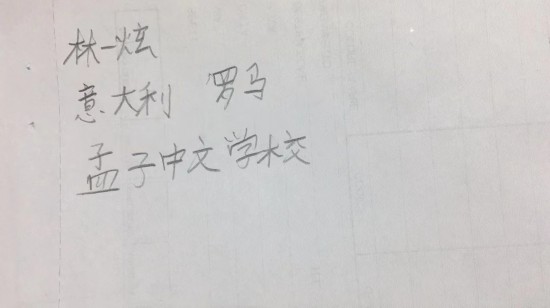 林一炫
意大利 罗马
孟子中文学校